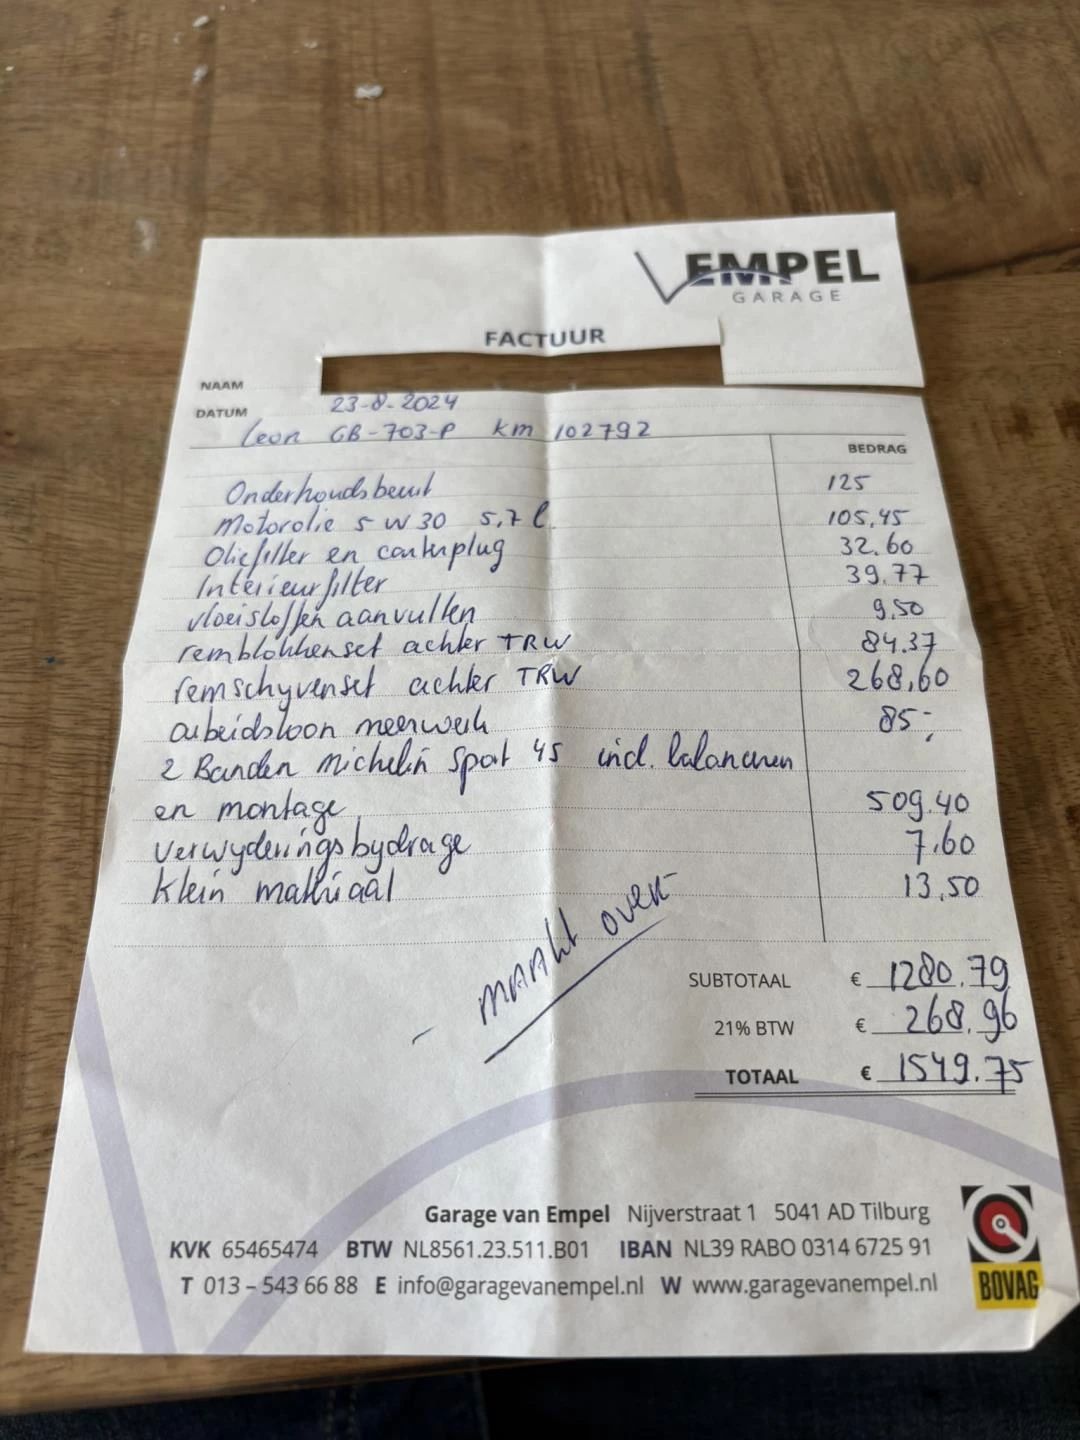 EMPEL
GARAGE
FACTUUR
NAAM
DATUM 23-8-2024
Leon GB-703-P km 102792
BEDRAG
Onderhoudsbeurt 125
Motorolie 5W30 5,7 l 105,45
Oliefilter en carterplug 32.60
Interieurfilter 39.77
vloeistoffen aanvullen 9,50
remblokkenset achter TRW 84.37
remschyvenset achter TRW 268,60
arbeidsloon meerwerk 85,-
2 Banden Michelin Sport 4S incl. balanceren
en montage 509.40
verwyderingsbydrage 7.60
Klein materiaal 13,50
- MAAKt over -
SUBTOTAAL € 1280.79
21% BTW € 268.96
TOTAAL € 1549.75
Garage van Empel Nijverstraat 1 5041 AD Tilburg
KVK 65465474 BTW NL8561.23.511.B01 IBAN NL39 RABO 0314 6725 91
T 013 – 543 66 88 E info@garagevanempel.nl W www.garagevanempel.nl
BOVAG